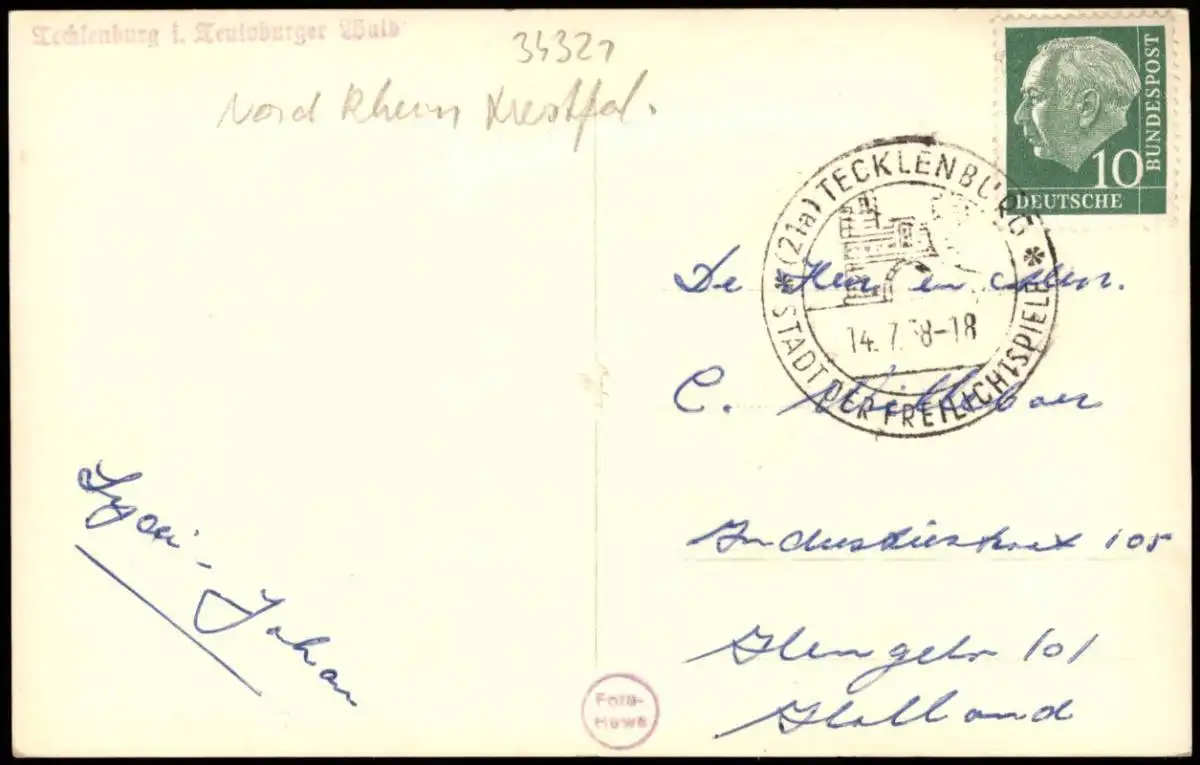 Tecklenburg i. Teutoburger Wald
34321
Nord Rhein Westfal.
10
DEUTSCHE
BUNDESPOST
* (21a) TECKLENBURG *
STADT DER FREILICHTSPIELE
14. 7. 58-18
De Heer en
C.
Industriestraat 105
Hengelo (o)
Holland
Johan
Foto-
Hawe